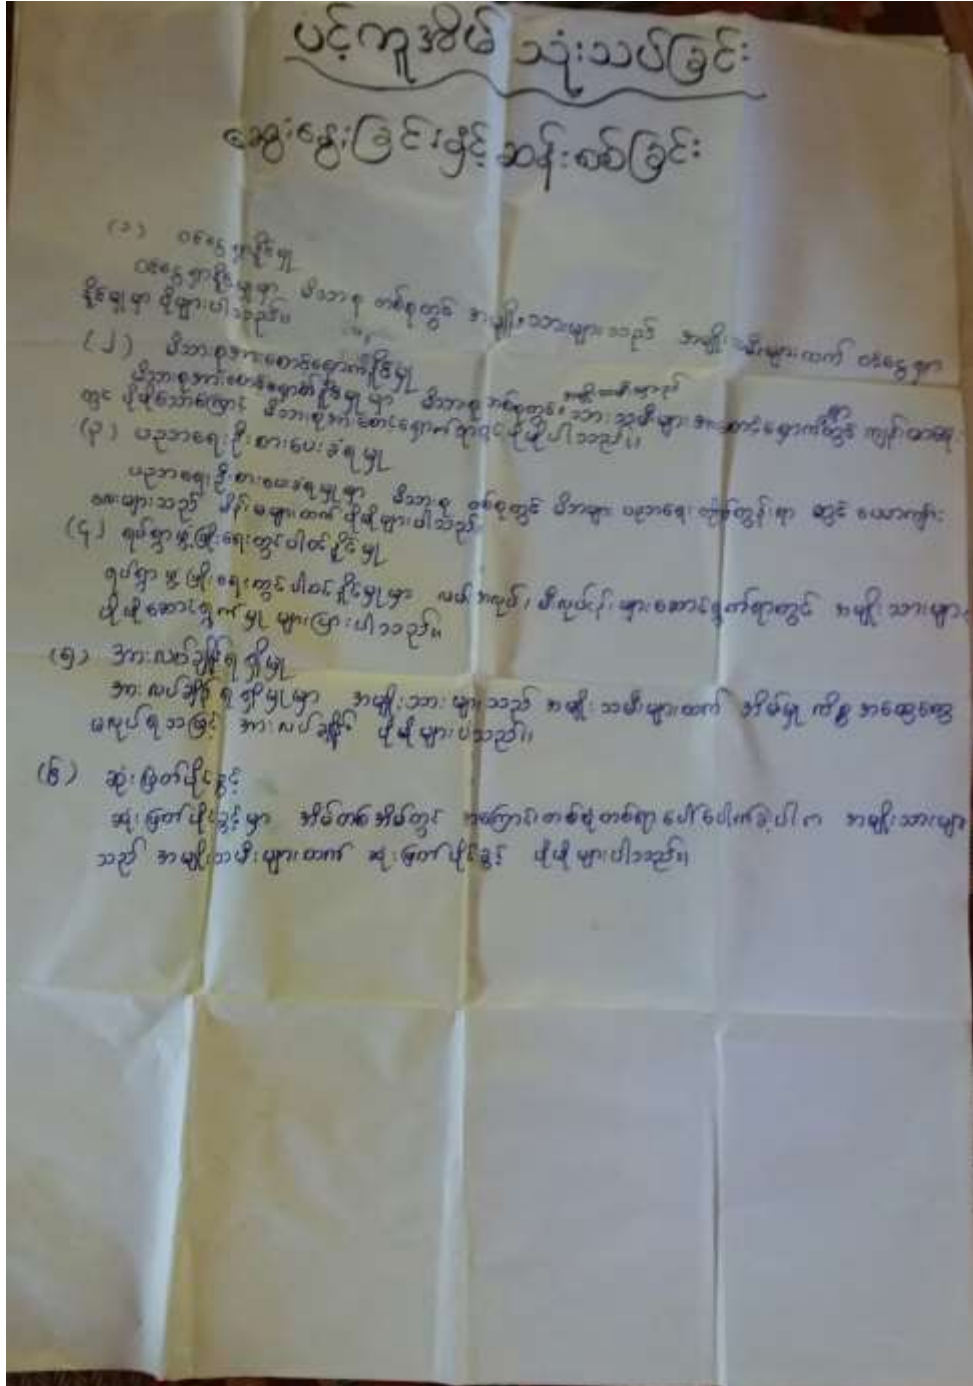 ပင့်ကူအိမ် သုံးသပ်ခြင်း
ဆွေးနွေးခြင်းနှင့် ဆန်းစစ်ခြင်း
(၁) ဝင်ငွေရှာနိုင်မှု
ဝင်ငွေရှာနိုင်မှုမှာ မိသားစု တစ်စုတွင် အမျိုးသားများသည် အမျိုးသမီးများထက် ဝင်ငွေရှာ
နိုင်မှုမှာ ပိုများပါသည်။
(၂) မိသားစုအားစောင့်ရှောက်နိုင်မှု
မိသားစုအားစောင့်ရှောက်နိုင်မှုမှာ မိသားစုတစ်စုတွင် အမျိုးသမီးများသည် သားသမီးများအားစောင့်ရှောက် ကျန်းမာရေး
တွင် ပိုမိုသောကြောင့် မိသားစုအားစောင့်ရှောက်ရာတွင် ပိုမိုပါသည်။
(၃) ပညာရေးဦးစားပေးခံရမှု
ပညာရေးဦးစားပေးခံရမှုမှာ မိသားစု တစ်စုတွင် မိဘများ ပညာရေး ရာ တွင် ယောကျာ်း
လေးများသည် မိန်းမများထက် ပိုမိုများပါသည်
(၄) ရပ်ရွာဖွံ့ဖြိုးရေးတွင်ပါဝင်နိုင်မှု
ရပ်ရွာဖွံ့ဖြိုးရေးတွင်ပါဝင်နိုင်မှုမှာ များဆောင်ရွက်ရာတွင် အမျိုးသားများ
ပိုမိုဆောင်ရွက်မှု များပြားပါသည်။
(၅) အားလပ်ချိန်ရရှိမှု
အားလပ်ချိန်ရရှိမှုမှာ အမျိုးသားများသည် အမျိုးသမီးများထက် အိမ်မှုကိစ္စ အထွေထွေ
မလုပ်ရသဖြင့် အားလပ်ချိန် ပိုမိုများပါသည်။
(၆) ဆုံးဖြတ်ပိုင်ခွင့်
ဆုံးဖြတ်ပိုင်ခွင့်မှာ အိမ်တစ်အိမ်တွင် အကြောင်းတစ်စုံတစ်ရာ ပေါ်ပေါက်ခဲ့ပါက အမျိုးသားများ
သည် အမျိုးသမီးများထက် ဆုံးဖြတ်ပိုင်ခွင့် ပိုမိုများပါသည်။